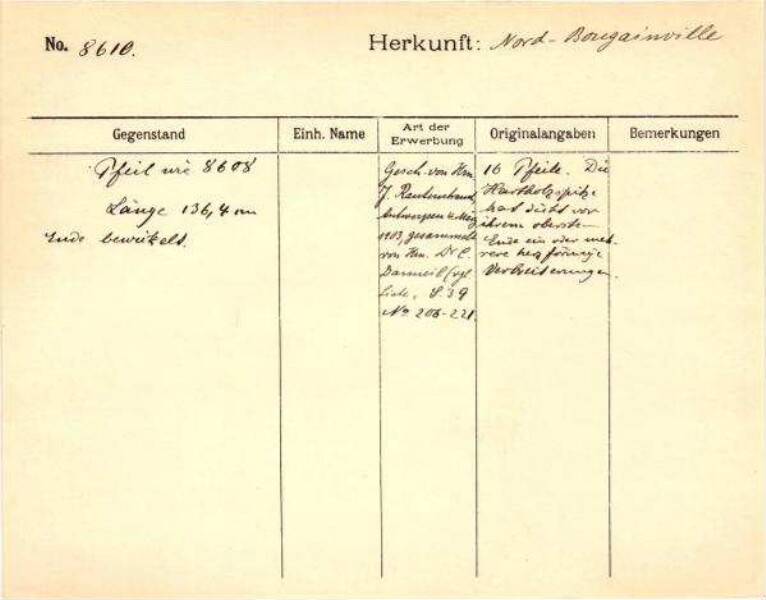 No. 8610.
Herkunft: Nord-Bougainville
Gegenstand
Einh. Name
Art der Erwerbung
Originalangaben
Bemerkungen
Pfeil wie 8608
Länge 136,4 cm
Ende bewickelt.
Gesch. von Hrn.
J.
Antwerpen
1903, gesammelt
von Hrn. Dr C.
Danneil (vgl.
Liste, S. 39
No 206-221.
16 Pfeile. Die
Hartholzspitze
hat dicht vor
ihrem obersten
Ende ein oder meh-
rere förmige
Verbreiterungen.